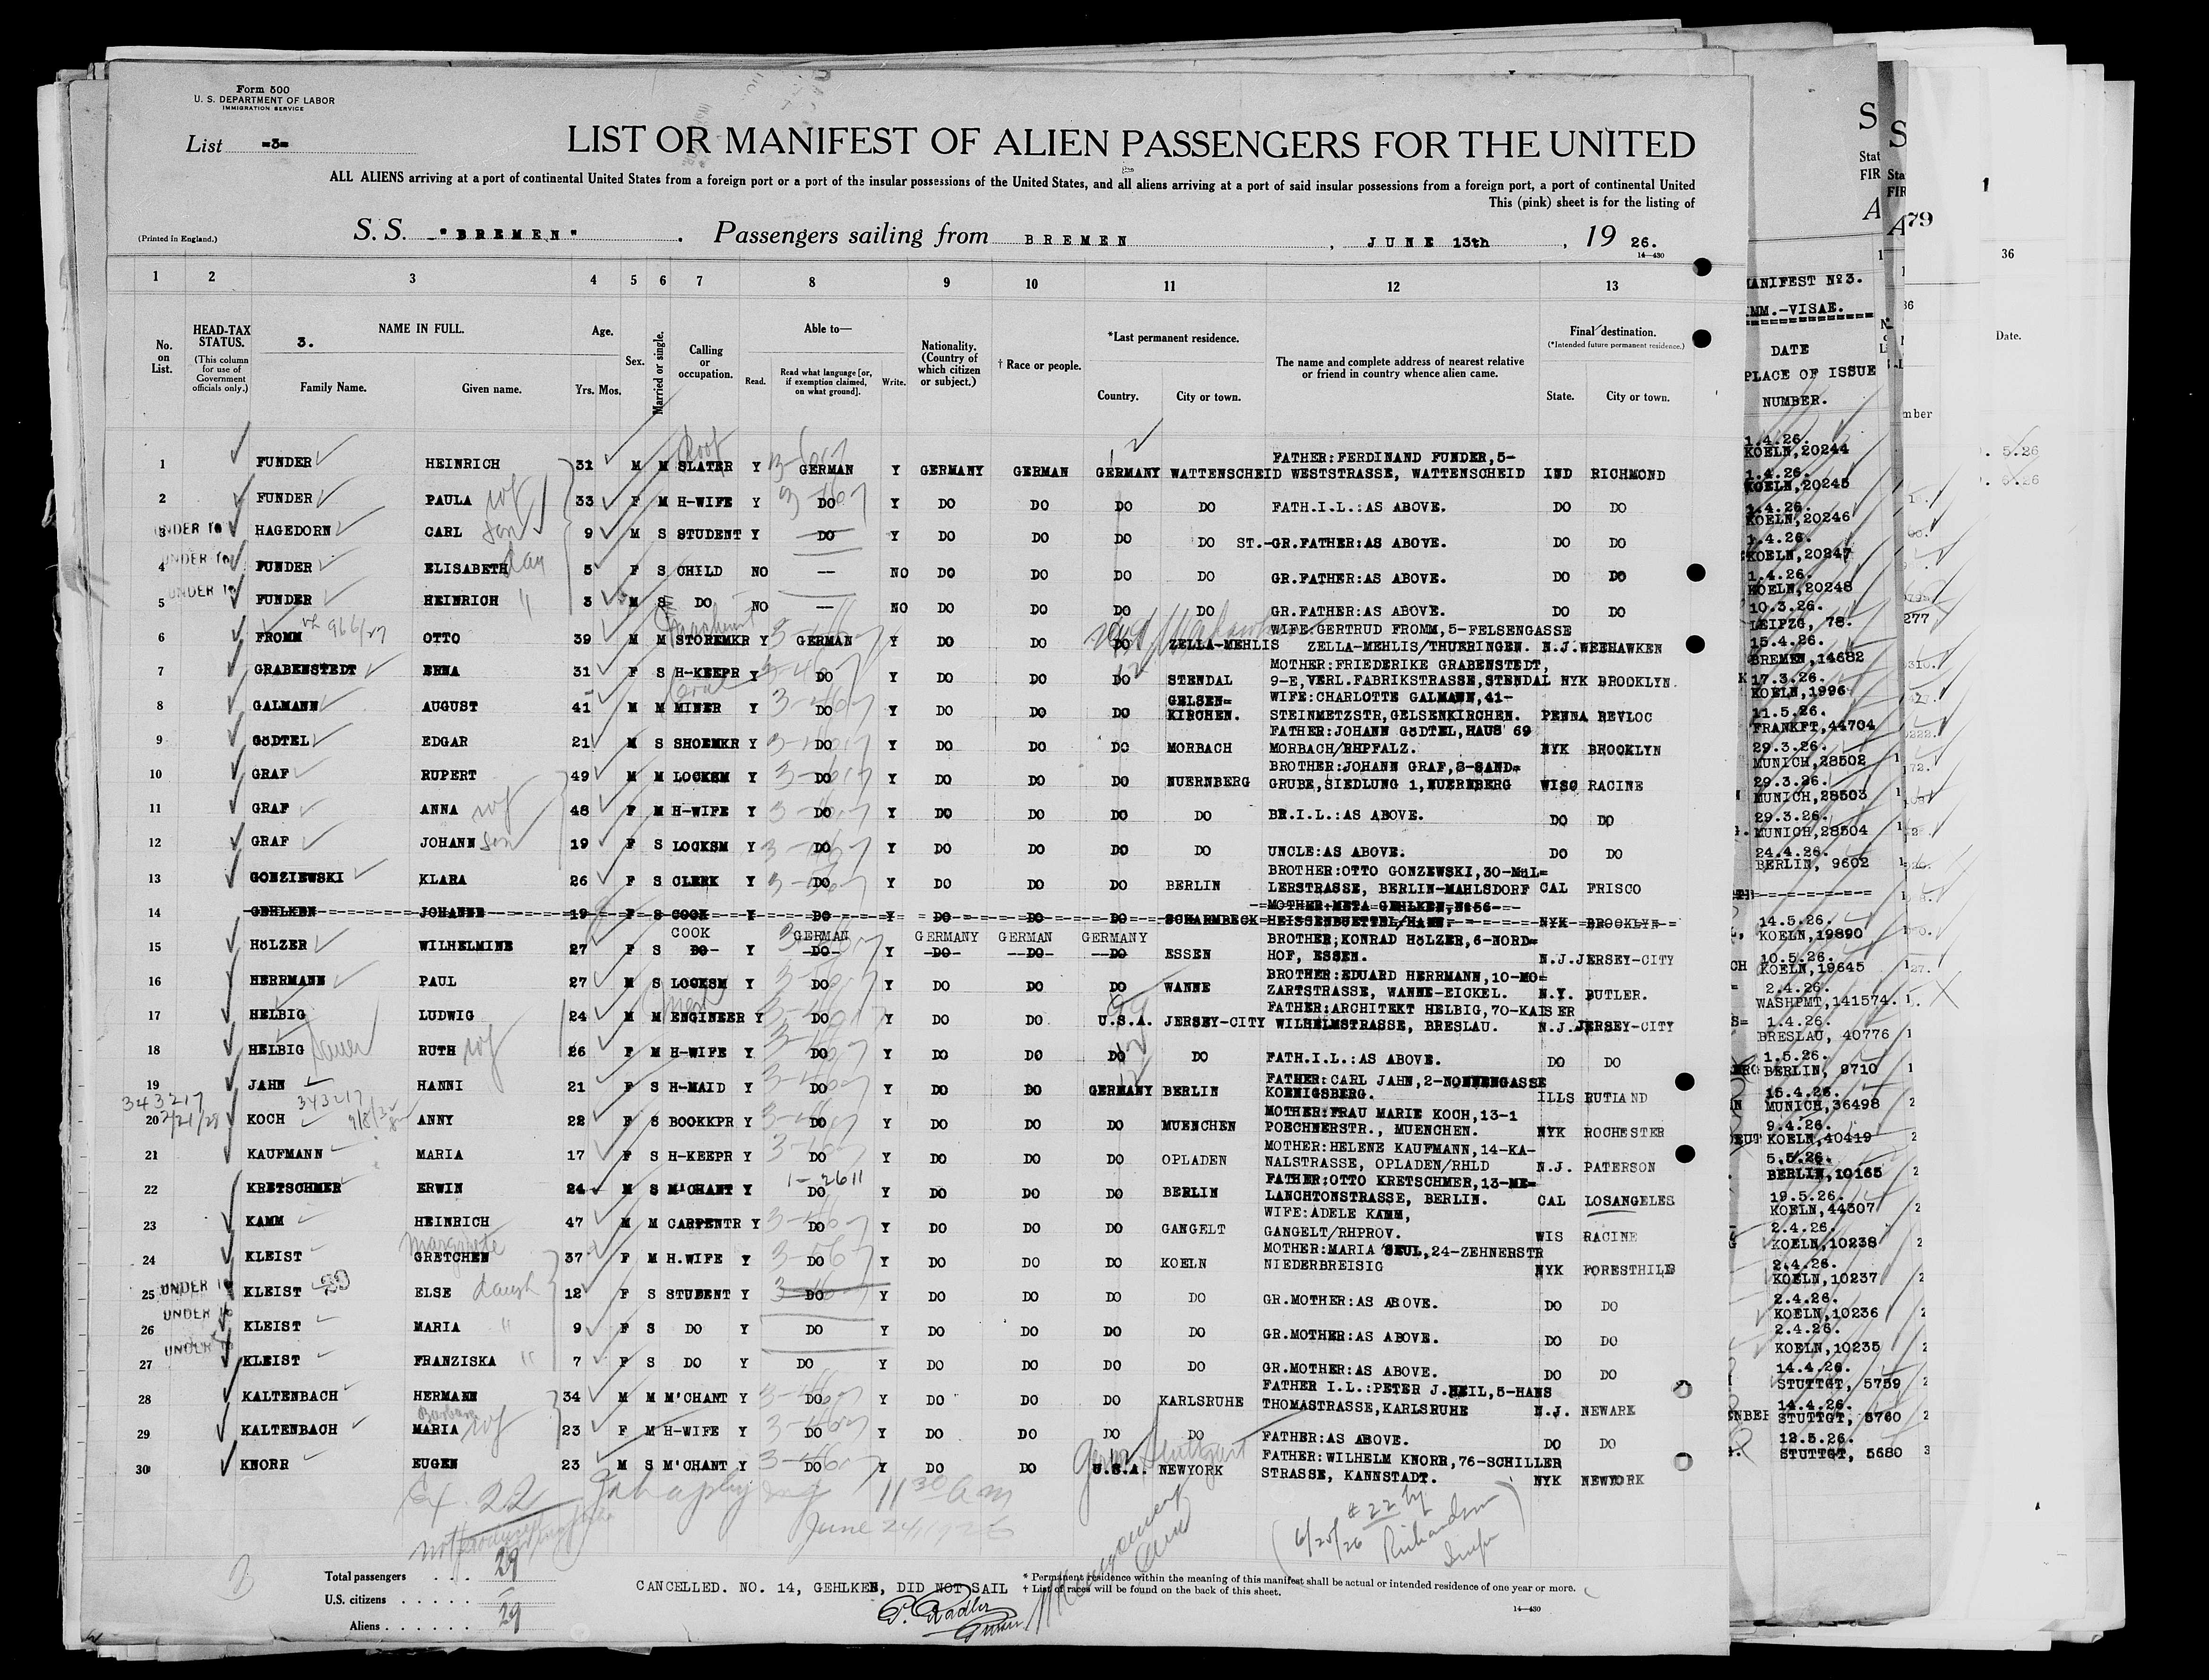 Form 500
U. S. DEPARTMENT OF LABOR
IMMIGRATION SERVICE
List -3-
LIST OR MANIFEST OF ALIEN PASSENGERS FOR THE UNITED
ALL ALIENS arriving at a port of continental United States from a foreign port or a port of the insular possessions of the United States, and all aliens arriving at a port of said insular possessions from a foreign port, a port of continental United
This (pink) sheet is for the listing of
(Printed in England.) S. S. "BREMEN" . Passengers sailing from BREMEN , JUNE 13th , 19 26.
14—430
1 2 3 4 5 6 7 8 9 10 11 12 13
No. on List. HEAD-TAX STATUS. (This column for use of Government officials only.) 3. NAME IN FULL. Family Name. Given name. Age. Yrs. Mos. Sex. Married or single. Calling or occupation. Able to— Read. Read what language [or, if exemption claimed, on what ground]. Write. Nationality. (Country of which citizen or subject.) † Race or people. *Last permanent residence. Country. City or town. The name and complete address of nearest relative or friend in country whence alien came. Final destination. (*Intended future permanent residence.) State. City or town.
1 FUNDER HEINRICH 31 M M SLATER Y GERMAN Y GERMANY GERMAN GERMANY WATTENSCHEID FATHER:FERDINAND FUNDER,5- WESTSTRASSE, WATTENSCHEID IND RICHMOND
2 FUNDER PAULA wf 33 F M H-WIFE Y DO Y DO DO DO DO FATH.I.L.:AS ABOVE. DO DO
UNDER 16 3 HAGEDORN CARL son 9 M S STUDENT Y DO Y DO DO DO DO ST.-GR.FATHER:AS ABOVE. DO DO
UNDER 16 4 FUNDER ELISABETH dau 5 F S CHILD NO -- NO DO DO DO DO GR.FATHER:AS ABOVE. DO DO
UNDER 16 5 FUNDER HEINRICH " 3 M S DO NO -- NO DO DO DO DO GR.FATHER:AS ABOVE. DO DO
6 FROMM OTTO 39 M M STOREMKR Y GERMAN Y DO DO DO ZELLA-MEHLIS WIFE:GERTRUD FROMM,5-FELSENGASSE ZELLA-MEHLIS/THUERINGEN. N.J.WEEHAWKEN
7 GRABENSTEDT ERNA 31 F S H-KEEPR Y DO Y DO DO DO STENDAL MOTHER:FRIEDERIKE GRABENSTEDT, 9-E,VERL.FABRIKSTRASSE,STENDAL NYK BROOKLYN.
8 GALMANN AUGUST 41 M M MINER Y DO Y DO DO DO GELSEN= KIRCHEN. WIFE:CHARLOTTE GALMANN,41- STEINMETZSTR,GELSENKIRCHEN. PENNA REVLOC
9 GöDTEL EDGAR 21 M S SHOEMKR Y DO Y DO DO DO MORBACH FATHER:JOHANN GöDTEL,HAUS 69 MORBACH/RHPFALZ. NYK BROOKLYN
10 GRAF RUPERT 49 M M LOCKSM Y DO Y DO DO DO NUERNBERG BROTHER:JOHANN GRAF,3-SAND= GRUBE,SIEDLUNG 1,NUERNBERG WISC RACINE
11 GRAF ANNA wf 48 F M H-WIFE Y DO Y DO DO DO DO BR.I.L.:AS ABOVE. DO DO
12 GRAF JOHANN son 19 F S LOCKSM Y DO Y DO DO DO DO UNCLE:AS ABOVE. DO DO
13 GONZIEWSKI KLARA 26 F S CLERK Y DO Y DO DO DO BERLIN BROTHER:OTTO GONZEWSKI,30-MüL= LERSTRASSE, BERLIN-MAHLSDORF CAL FRISCO
14 GEHLKEN JOHANNE 19 F S COOK Y DO Y DO DO DO SCHARMBECK MOTHER:META GEHLKEN,No56 HEISSENBUETTEL/HANN. NYK BROOKLYN
15 HöLZER WILHELMINE 27 F S COOK DO Y GERMAN DO Y GERMANY DO GERMAN DO GERMANY DO ESSEN BROTHER;KONRAD HöLZER,6-NORD= HOF, ESSEN. N.J.JERSEY-CITY
16 HERRMANN PAUL 27 M S LOCKSM Y DO Y DO DO DO WANNE BROTHER:EDUARD HERRMANN,10-MO= ZARTSTRASSE, WANNE-EICKEL. N.Y. BUTLER.
17 HELBIG LUDWIG 24 M M ENGINEER Y DO Y DO DO U.S.A. JERSEY-CITY FATHER:ARCHITEKT HELBIG,70-KAISER WILHELMSTRASSE, BRESLAU. N.J.JERSEY-CITY
18 HELBIG RUTH wf 26 F M H-WIFE Y DO Y DO DO DO DO FATH.I.L.:AS ABOVE. DO DO
19 JAHN HANNI 21 F S H-MAID Y DO Y DO DO GERMANY BERLIN FATHER:CARL JAHN,2-NONNENGASSE KOENIGSBERG. ILLS RUTLAND
343217 343217
20 2/21/28 KOCH ANNY 22 F S BOOKKPR Y DO Y DO DO DO MUENCHEN MOTHER:FRAU MARIE KOCH,13-1 POECHNERSTR., MUENCHEN. NYK ROCHESTER
21 KAUFMANN MARIA 17 F S H-KEEPR Y DO Y DO DO DO OPLADEN MOTHER:HELENE KAUFMANN,14-KA- NALSTRASSE, OPLADEN/RHLD N.J. PATERSON
22 KRETSCHMER ERWIN 24 M S M'CHANT Y 1-2611 DO Y DO DO DO BERLIN FATHER:OTTO KRETSCHMER,13-ME= LANCHTONSTRASSE, BERLIN. CAL LOSANGELES
23 KAMM HEINRICH 47 M M CARPENTR Y DO Y DO DO DO GANGELT WIFE:ADELE KAMM, GANGELT/RHPROV. WIS RACINE
24 KLEIST Margarete GRETCHEN 37 F M H.WIFE Y DO Y DO DO DO KOELN MOTHER:MARIA SEUL,24-ZEHNERSTR NIEDERBREISIG NYK FORESTHILS
UNDER 16 25 KLEIST ELSE daugh 12 F S STUDENT Y DO Y DO DO DO DO GR.MOTHER:AS ABOVE. DO DO
UNDER 16 26 KLEIST MARIA " 9 F S DO Y DO Y DO DO DO DO GR.MOTHER:AS ABOVE. DO DO
UNDER 16 27 KLEIST FRANZISKA " 7 F S DO Y DO Y DO DO DO DO GR.MOTHER:AS ABOVE. DO DO
28 KALTENBACH HERMANN 34 M M M'CHANT Y DO Y DO DO DO KARLSRUHE FATHER I.L.:PETER J.HEIL,5-HANS THOMASTRASSE,KARLSRUHE N.J. NEWARK
29 KALTENBACH Barbara MARIA wf 23 F M H-WIFE Y DO Y DO DO DO DO FATHER:AS ABOVE. DO DO
30 KNORR EUGEN 23 M S M'CHANT Y DO Y DO DO Germ Stuttgart U.S.A. NEWYORK FATHER:WILHELM KNORR,76-SCHILLER STRASSE, KANNSTADT. NYK NEWYORK
22 11 30 am
June 24, 1926
6/25/26 # 22 by Richardson Insp
Total passengers . . . 29
U.S. citizens . . . . .
Aliens . . . . . . 29
CANCELLED. NO. 14, GEHLKEN, DID NOT SAIL
* Permanent residence within the meaning of this manifest shall be actual or intended residence of one year or more.
† List of races will be found on the back of this sheet.
14—430
MANIFEST No3.
MM.-VISAE.
DATE
PLACE OF ISSUE
NUMBER.
1.4.26.
KOELN,20244
1.4.26.
KOELN,20245
1.4.26.
KOELN,20246
1.4.26.
KOELN,20247
1.4.26.
KOELN,20248
10.3.26.
LEIPZG, 78.
15.4.26.
BREMEN,14682
17.3.26.
KOELN,1996
11.5.26.
FRANKFT,44704
29.3.26.
MUNICH,28502
29.3.26.
MUNICH,28503
29.3.26.
MUNICH,28504
24.4.26.
BERLIN, 9602
14.5.26.
KOELN,19890
10.5.26.
KOELN,19645
2.4.26.
WASHPMT,141574.
1.4.26.
BRESLAU, 40776
1.5.26.
BERLIN, 9710
15.4.26.
MUNICH,36498
9.4.26.
KOELN,40419
5.5.26.
BERLIN,10165
19.5.26.
KOELN,44307
2.4.26.
KOELN,10238
2.4.26.
KOELN,10237
2.4.26.
KOELN,10236
2.4.26.
KOELN,10235
14.4.26.
STUTTGT, 5759
14.4.26.
STUTTGT, 5760
12.5.26.
STUTTGT, 5680
79
36
Date.